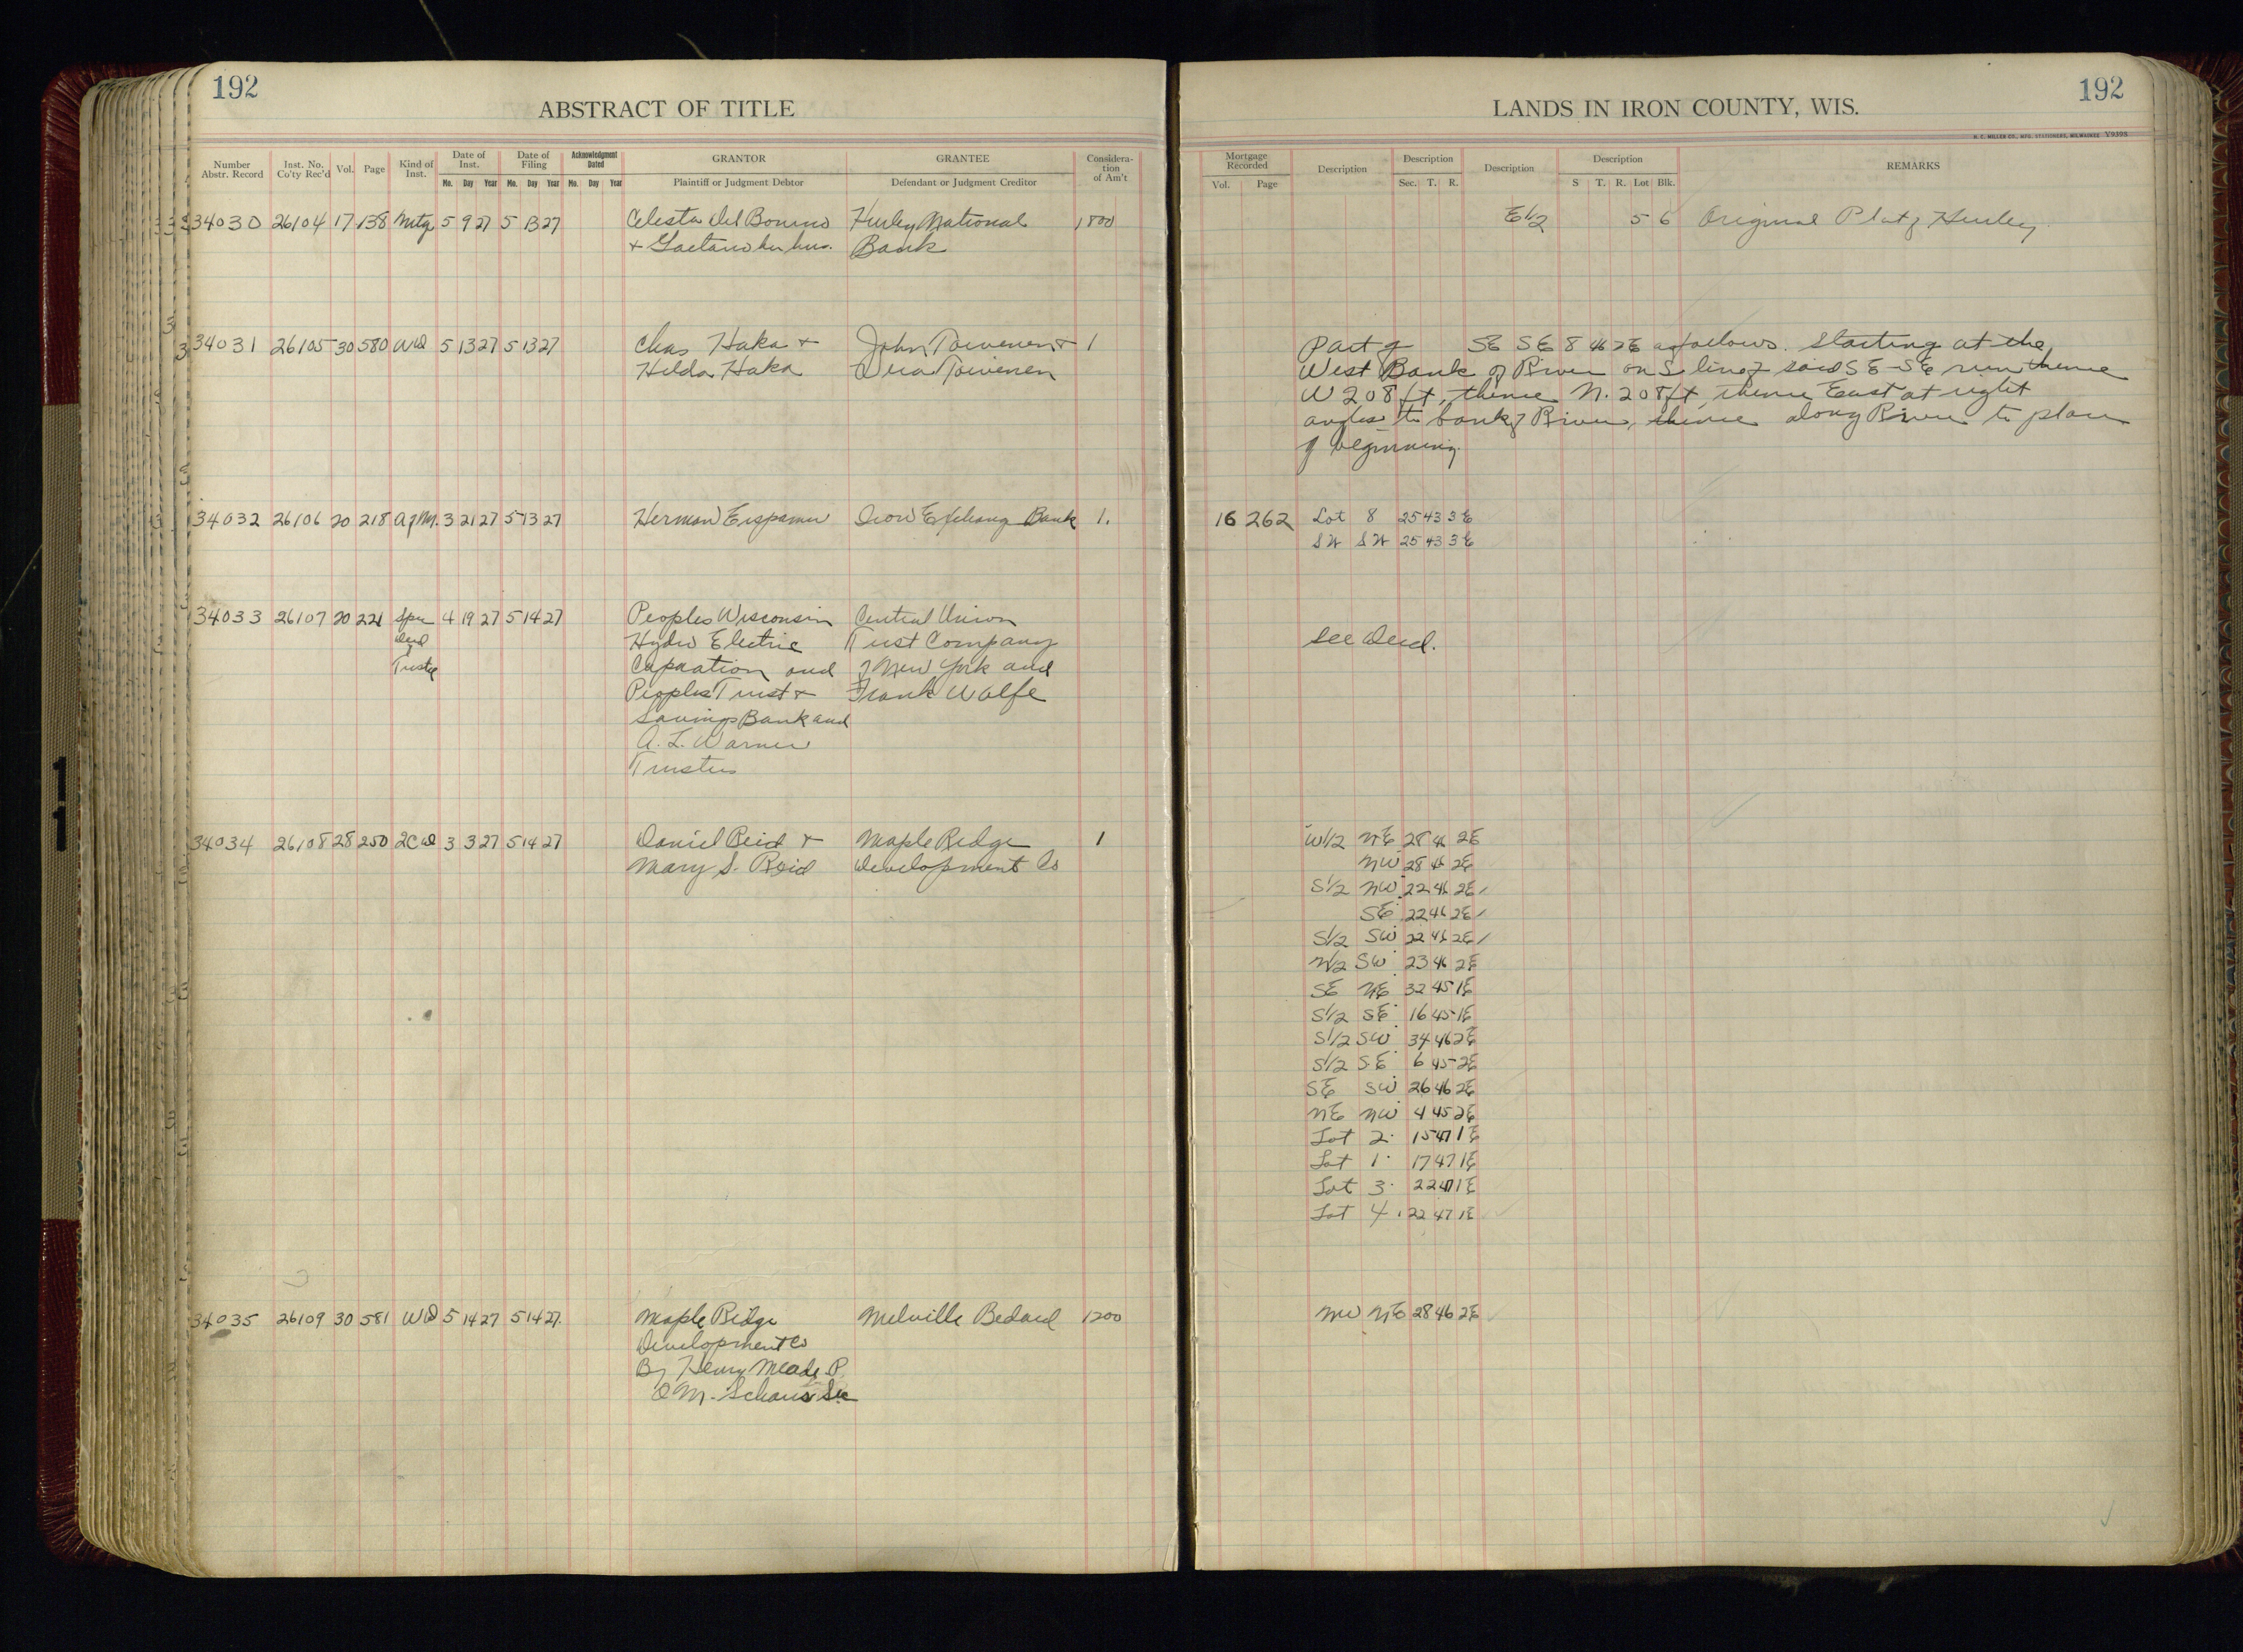 192
ABSTRACT OF TITLE
Number Abstr. Record Inst. No. Co'ty Rec'd Vol. Page Kind of Inst. Date of Inst. Mo. Day Year Date of Filing Mo. Day Year Acknowledgment Dated Mo. Day Year GRANTOR Plaintiff or Judgment Debtor GRANTEE Defendant or Judgment Creditor Considera-tion of Am't
34030 26104 17 138 Mtg 5 9 27 5 13 27 Celesta Del Bonino Hurley National 1800
+ Gaetano her hus. Bank
34031 26105 30 580 WD 5 13 27 5 13 27 Chas Haka + John Toivenen + 1
Hilda Haka Toivenen
34032 26106 20 218 Herman 3 21 27 5 13 27 Iron Exchang Bank 1.
34033 26107 20 221 4 19 27 5 14 27 Peoples Wisconsin Central Union
Deed Hydro Electric Trust Company
Truste Corporation and of New York and
Peoples Trust + Frank Wolfe
Savings Bank and
A. L. Warner
Trustees
34034 26108 28 250 2CD 3 3 27 5 14 27 Daniel Reid + Maple Ridge 1
Mary S. Reid Development Co
34035 26109 30 581 WD 5 14 27 5 14 27. Maple Ridge Melville Bedard 1200
Development Co
By Henry Meade P.
O M. Schaus Sec
192
LANDS IN IRON COUNTY, WIS.
H. C. MILLER CO., MFG. STATIONERS, MILWAUKEE Y9398
Mortgage Recorded Vol. Page Description Description Sec. T. R. Description Description S T. R. Lot Blk. REMARKS
E1/2 5 6 Original Plat of Hurley.
Part of SE SE 8 46 2E as follows. Starting at the
West Bank of River on S line of said SE-SE run thence
W 208 ft, thence N. 208 ft, thence East at right
angles to bank of River, thence along River to place
of beginning.
16 262 Lot 8 25 43 3E
SW SW 25 43 3E
See Deed.
W1/2 NE 28 46 2E
NW 28 46 2E
S1/2 NW 22 46 2E
SE 22 46 2E
S1/2 SW 22 46 2E
N1/2 SW 23 46 2E
SE NE 32 45 1E
S1/2 SE 16 45 1E
S1/2 SW 34 46 2E
S1/2 SE 6 45 2E
SE SW 26 46 2E
NE NW 4 45 2E
Lot 2 15 47 1E
Lot 1 17 47 1E
Lot 3 22 47 1E
Lot 4 22 47 1E
NW NE 28 46 2E
11